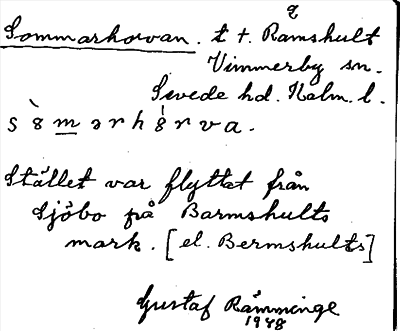 Sommarhorvan. t t. Ramshult
Vimmerby sn.
Sevede hd. Kalm. l.
s ò m ə r h o̊ r v a.
Stället var flyttat från
Sjöbo på Barmshults
mark. [el. Bermshults]
Gustaf Rämminge
1948